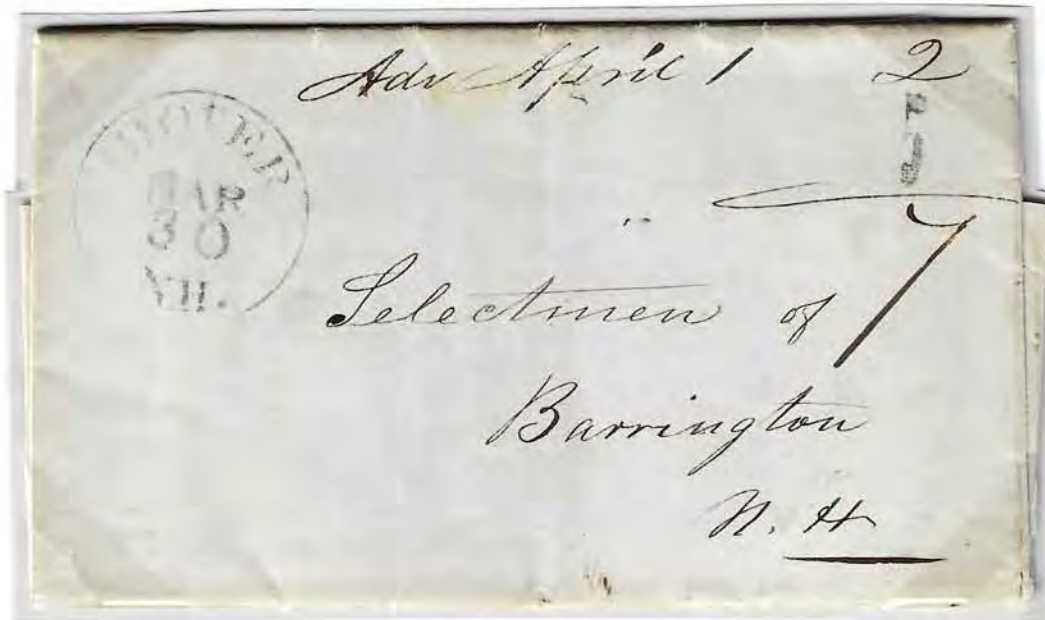 Adv April 1 2
DOVER
MAR
30
N.H.
7
Selectmen of
Barrington
N. H